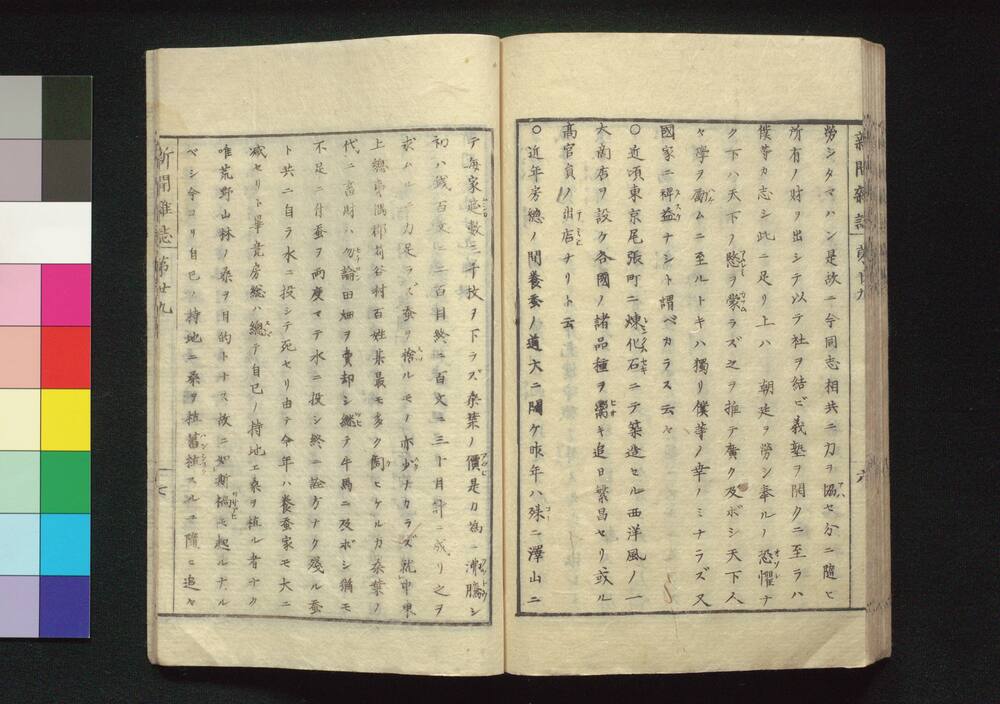 新聞雜誌 第廿九
六
勞シタマハン是故ニ今同志相共ニ力ヲ協セ分ニ隨ヒ
所有ノ財ヲ出シテ以テ社ヲ結ビ義塾ヲ開クニ至ラハ
僕等カ志シ此ニ足リ上ハ 朝廷ヲ勞シ奉ルノ恐懼ナ
ク下ハ天下ノ愍ヲ蒙ラズ之ヲ推テ廣ク及ボシ天下人
々學ヲ勵ムニ至ルトキハ獨リ僕等ノ幸ノミナラズ又
國家ニ裨益ナシト謂ベカラス云々
○近頃東京尾張町ニ煉化石ニテ築造セル西洋風ノ一
大商店ヲ設ク各國ノ諸品種ヲ鬻キ追日繁昌セリ或ル
高官員ノ出店ナリト云
○近年房總ノ間養蚕ノ道大ニ開ケ昨年ハ殊ニ澤山ニ
テ毎家莚數三千枚ヲ下ラズ桑葉ノ價是カ爲ニ沸騰シ
初ハ錢百文ニ二百目終ニ百文ニ三十目計ニ成リ之ヲ
求ムルニ力足ラズ蚕ヲ捨ルモノ亦少ナカラズ就中東
上總夷隅郡苅谷村百姓某最モ多ク飼ヒケルカ桑葉ノ
代ニ高財ハ勿論田畑ヲ賣却シ繼テ牛馬ニ及ボシ猶モ
不足ニ付蚕ヲ兩度マテ水ニ投シ終ニ詮方ナク殘ル蚕
ト共ニ自ラ水ニ投シテ死セリ由テ今年ハ養蚕家モ大ニ
減セリト畢竟房総ハ總テ自己ノ持地エ桑ヲ植ル者ナク
唯荒野山林ノ桑ヲ目的トナス故ニ如斯禍モ起ルナル
ベシ今ヨリ自己ノ持地ニ桑ヲ植蕃殖スルニ隨ヒ追々
新聞雜誌 第廿九
七